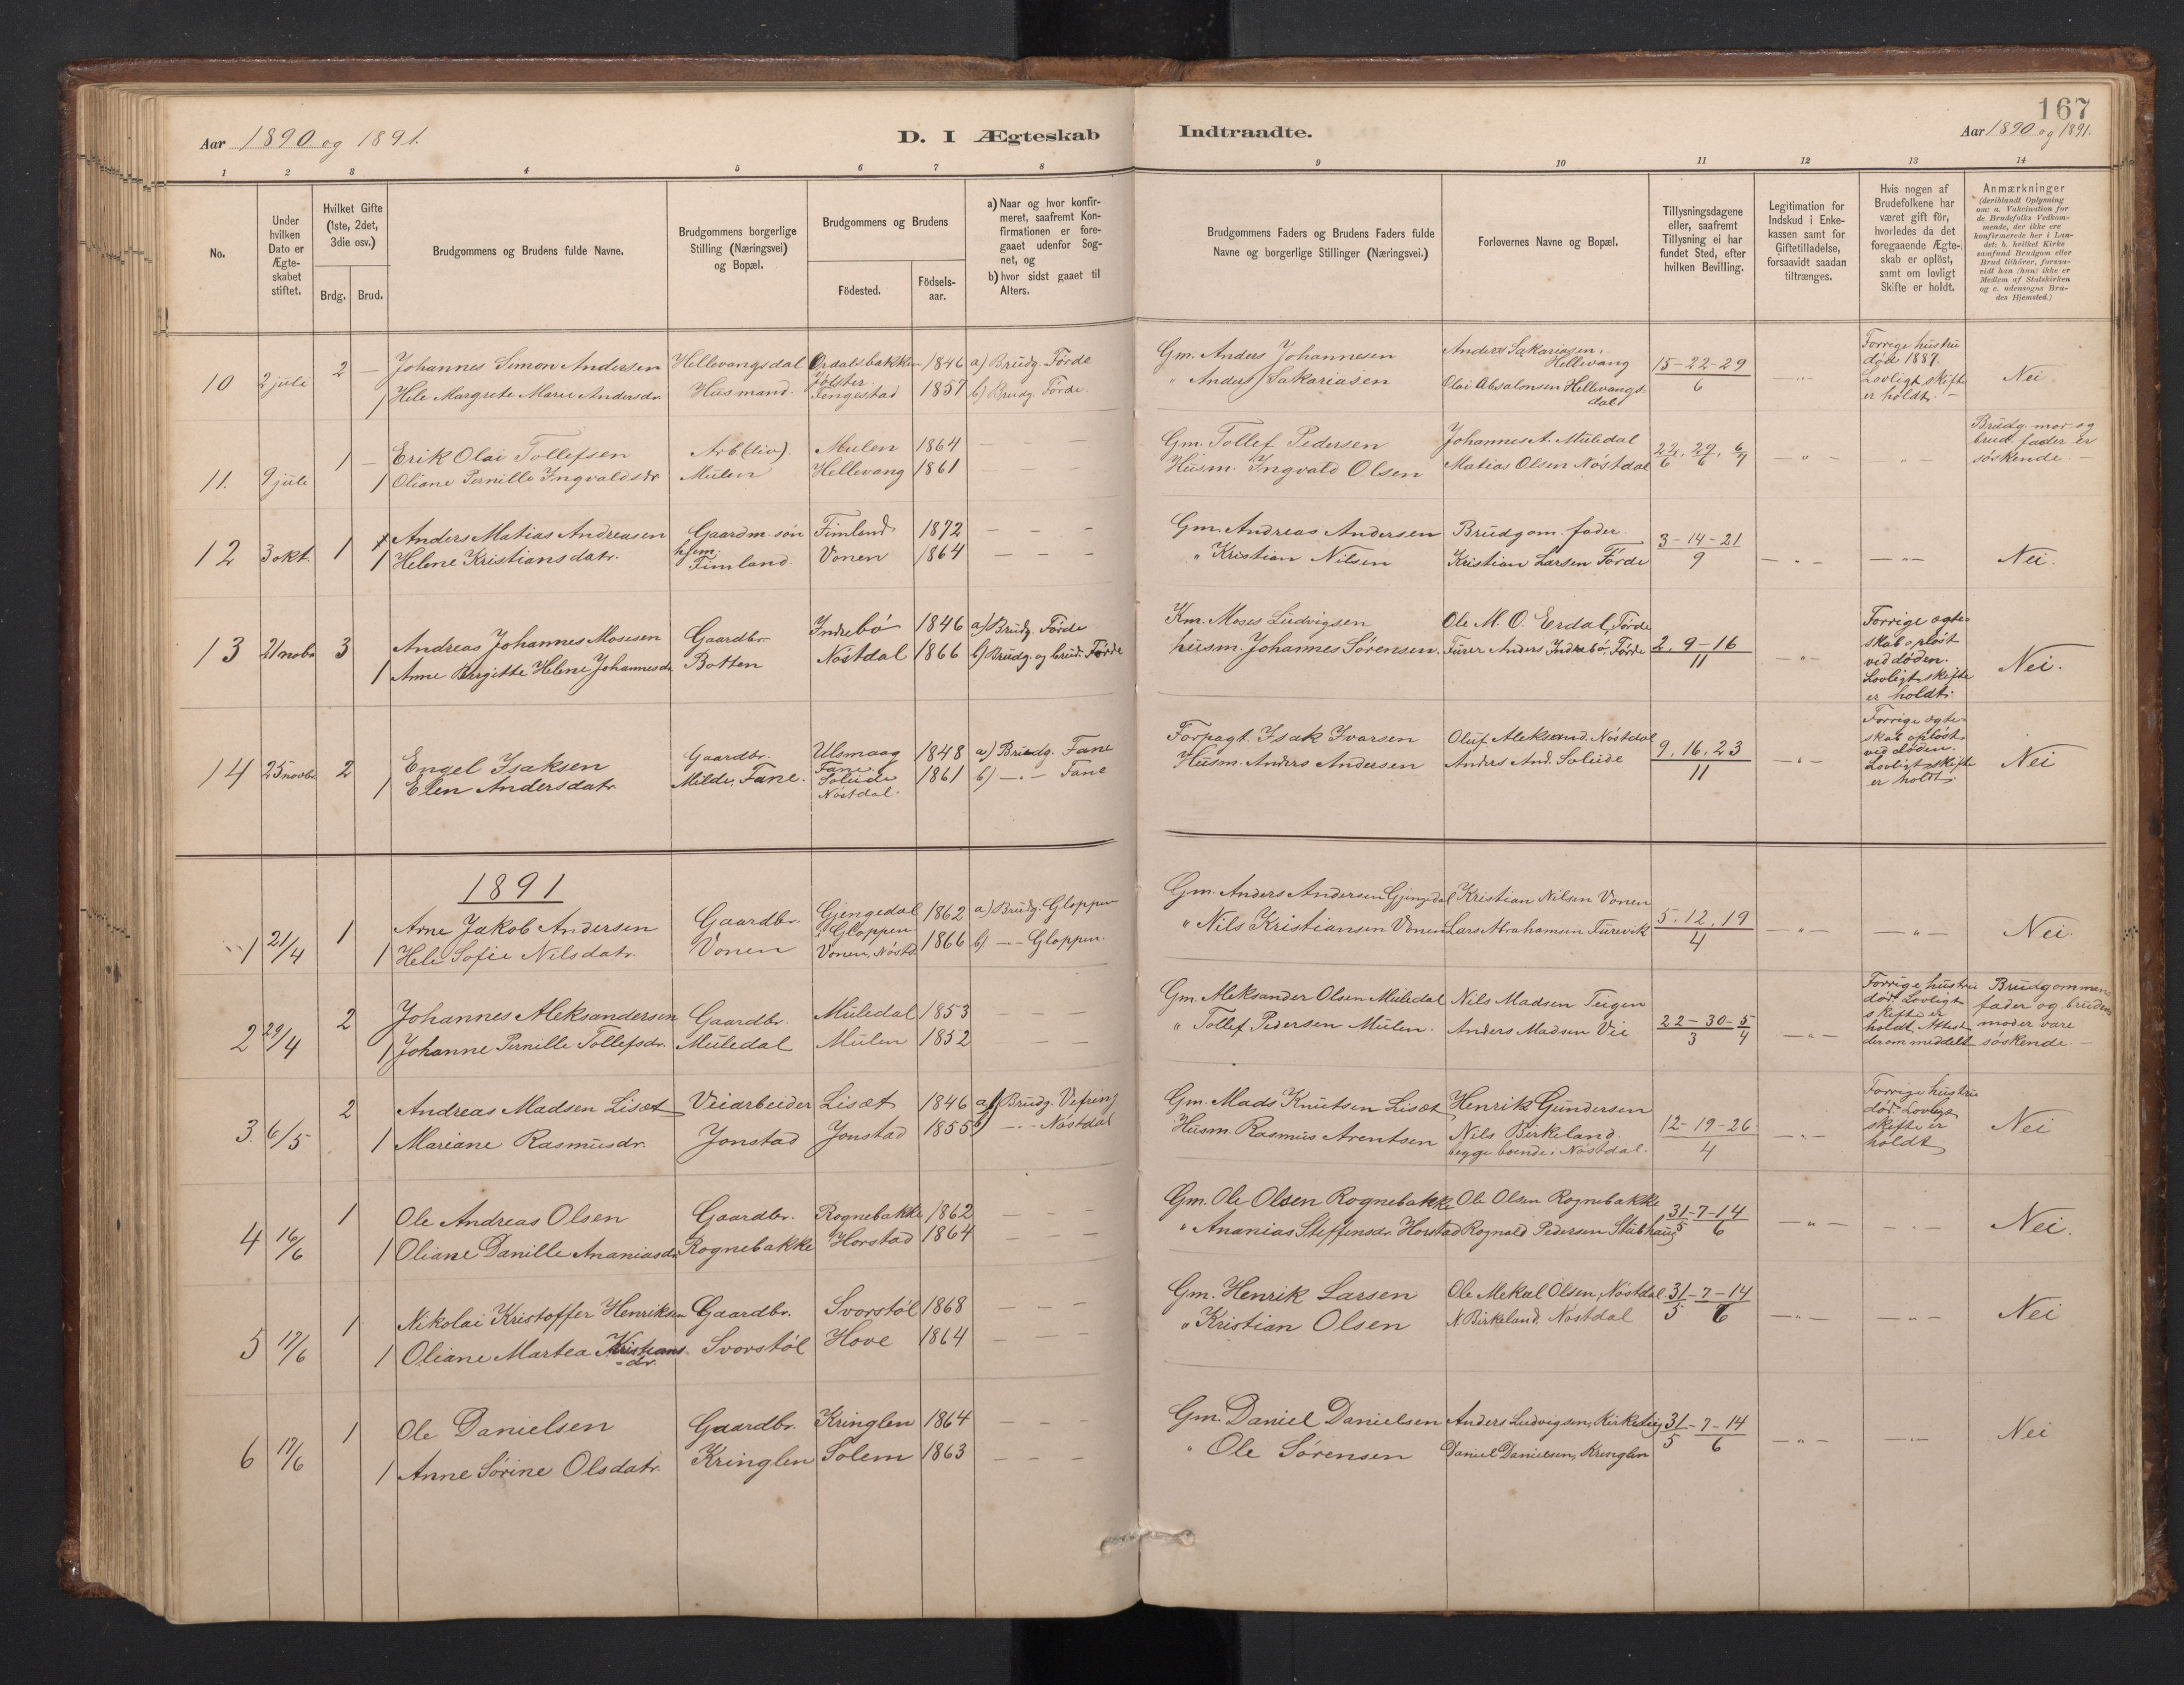 167
Aar 1890 og 1891.
D. I Ægteskab Indtraadte.
Aar 1890 og 1891.
1 2 3 4 5 6 7 8 9 10 11 12 13 14
No.
Under hvilken Dato er Ægte-skabet stiftet.
Hvilket Gifte (1ste, 2det, 3die osv.)
Brdg. Brud.
Brudgommens og Brudens fulde Navne.
Brudgommens borgerlige Stilling (Næringsvei) og Bopæl.
Brudgommens og Brudens
Födested.
Födsels-aar.
a) Naar og hvor konfir-meret, saafremt Kon-firmationen er fore-gaaet udenfor Sog-net, og
b) hvor sidst gaaet til Alters.
Brudgommens Faders og Brudens Faders fulde Navne og borgerlige Stillinger (Næringsvei.)
Forlovernes Navne og Bopæl.
Tillysningsdagene eller, saafremt Tillysning ei har fundet Sted, efter hvilken Bevilling.
Legitimation for Indskud i Enke-kassen samt for Giftetilladelse, forsaavidt saadan tiltrænges.
Hvis nogen af Brudefolkene har været gift för, hvorledes da det foregaaende Ægte-skab er oplöst, samt om lovligt Skifte er holdt.
Anmærkninger (deriblandt Oplysning om: a. Vakcination for de Brudefolks Vedkom-mende, der ikke ere konfirmerede her i Lan-det; b. hvilket Kirke samfund Brudgom eller Brud tilhörer, forsaa-vidt han (hun) ikke er Medlem af Statskirken og c. udensogns Bru-des Hjemsted.)
10 2 juli 2 — Johannes Simon Andersen Hellevangsdal Ordalsbakken Jølster 1846 a) Brudg. Førde
1 Hele Margrete Marie Andersdr Husmand. Fengestad 1857 b) Brudg. Førde.
Gm. Anders Johannesen Anders Sakariasen, Hellevang 15-22-29
" Anders Sakariasen Olai Absalonsen Hellevangsdal 6
Forrige hustru død 1887. Lovligt skifte er holdt. — Nei
11. 9 juli 1 — Erik Olai Tollefsen Arb (tiv). Mulen 1864 — — —
1 Oliane Pernille Ingvaldsdr Mulen Hellevang 1861 — — —
Gm. Tollef Pedersen Johannes A. Muledal 22/6, 29/6, 6/7
Husm. Ingvald Olsen Matias Olsen Nøstdal — " —
Brudg. mor og brud. fader er søskende. —
12 3 okt. 1 Anders Matias Andreasen Gaardm. søn Fimland 1872 — — —
1 Helene Kristiansdatr. hjem. Fimland. Vonen 1864 — — —
Gm. Andreas Andersen Brudgom. fader 3-14-21
" Kristian Nilsen Kristian Larsen Førde 9 — " — — " — Nei.
13 21 novbr 3 Andreas Johannes Mosesen Gaardbr. Indrebø 1846 a) Brudg. Førde
1 Anne Birgitte Helene Johannesdr Botten Nøstdal 1866 b) Brudg. og brud. Førde
Km. Moses Ludvigsen Ole M. O. Erdal, Førde
husm. Johannes Sørensen. Furer Anders Indrebø, Førde 2. 9-16 11 — " —
Forrige ægteskab opløst ved døden. Lovligt skifte er holdt. Nei.
14 25 novbr 2 Engel Isaksen Gaardbr. Ulsmaag Fane 1848 a) Brudg. Fane
1 Elen Andersdatr. Milde, Fane. Solude Nøstdal. 1861 b) — " — Fane
Forpagt. Isak Ivarsen Oluf Aleksand. Nøstdal 9. 16. 23
Husm. Anders Andersen Anders And. Solude 11 — " —
Forrige ægteskab opløst ved døden. Lovligt skifte er holdt. Nei
1891
1 21/4 1 Arne Jakob Andersen Gaardbr. Gjengedal i Gloppen 1862 a) Brudg. Gloppen
1 Hele Sofie Nilsdatr. Vonen Vonen, Nøstd. 1866 b) — " — Gloppen.
Gm. Anders Andersen Gjengedal Kristian Nilsen Vonen
" Nils Kristiansen Vonen Lars Abrahamsen Furevik 5. 12. 19 4 — " — — " — Nei.
2 29/4 2 Johannes Aleksandersen Gaardbr. Muledal 1853 — — —
1 Johanne Pernille Tollefsdr. Muledal Mulen 1852 — —
Gm. Aleksander Olsen Muledal Nils Madsen Teigen
" Tollef Pedersen Mulen. Anders Madsen Vie 22-30/3 - 5/4 — " —
Forrige hustru død. Lovligt skifte er holdt. Attest derom meddelt
Brudgommens fader og brudens moder vare søskende. —
3. 6/5 2 Andreas Madsen Lisæt Veiarbeider Lisæt 1846 a) Brudg. Vefring
1 Mariane Rasmusdr. Jonstad Jonstad 1855 b) — " — Nøstdal
Gm. Mads Knutsen Lisæt Henrik Gundersen
Husm. Rasmus Arentsen Nils Birkeland. begge boende i Nøstdal. 12-19-26 4 — " —
Forrige hustru død. Lovligt skifte er holdt Nei
4 16/6 1 Ole Andreas Olsen Gaardbr. Rognebakke 1862 — — —
1 Oliane Danille Ananiasdr Rognebakke Horstad 1864 — — —
Gm. Ole Olsen Rognebakke Ole Olsen Rognebakke
" Ananias Steffensdr. Horstad Rognald Pedersen Stubhaug 31/5-7-14/6 — " — — " — Nei.
5 17/6 1 Nikolai Kristoffer Henriksen Gaardbr. Svorstøl 1868 — — —
1 Oliane Martea Kristiansdr. Svorstøl Hove 1864 — — —
Gm. Henrik Larsen Ole Mekel Olsen, Nøstdal 31/5-7-14/6
" Kristian Olsen N. Birkeland, Nøstdal — " — — " — Nei
6 17/6 1 Ole Danielsen Gaardbr. Kringlen 1864 — — —
1 Anne Sørine Olsdatr. Kringlen Solem 1863 — — —
Gm. Daniel Danielsen Anders Ludvigsen, Kirketeig 31/5-7-14/6
" Ole Sørensen Daniel Danielsen, Kringlen — " — — " — Nei